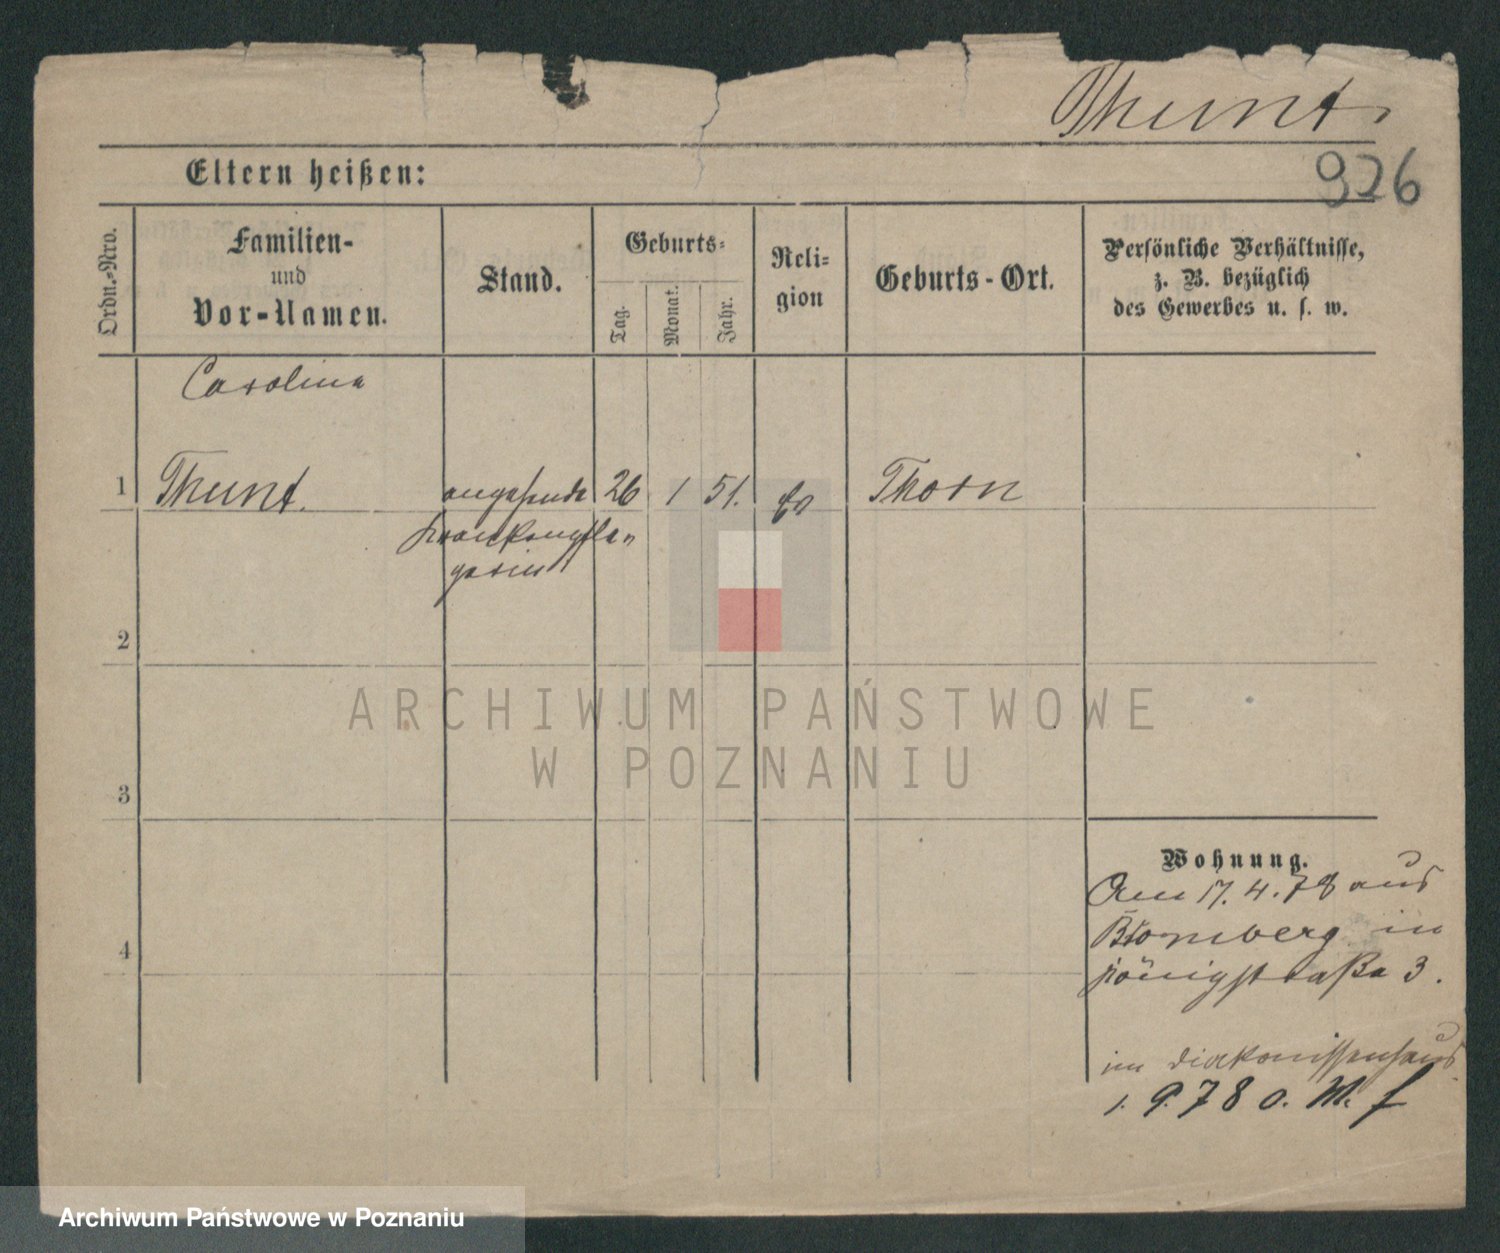 Thunt.
926
Eltern heißen:
Ordn.-Nro.
Familien-
und
Vor-Namen.
Stand.
Geburts-
Tag.
Monat.
Jahr.
Reli-
gion
Geburts-Ort.
Persönliche Verhältnisse,
z. B. bezüglich
des Gewerbes u. s. w.
Carolina
1 Thunt. angehende 26 1 51. Ev Thorn
Krankenpfle-
gerin
2
ARCHIWUM PAŃSTWOWE
W POZNANIU
3
Wohnung.
Am 17.4.78 aus
4 Bromberg in
Königstraße 3.
im Diakonissenhaus
1. 9. 78 o. M. f
Archiwum Państwowe w Poznaniu